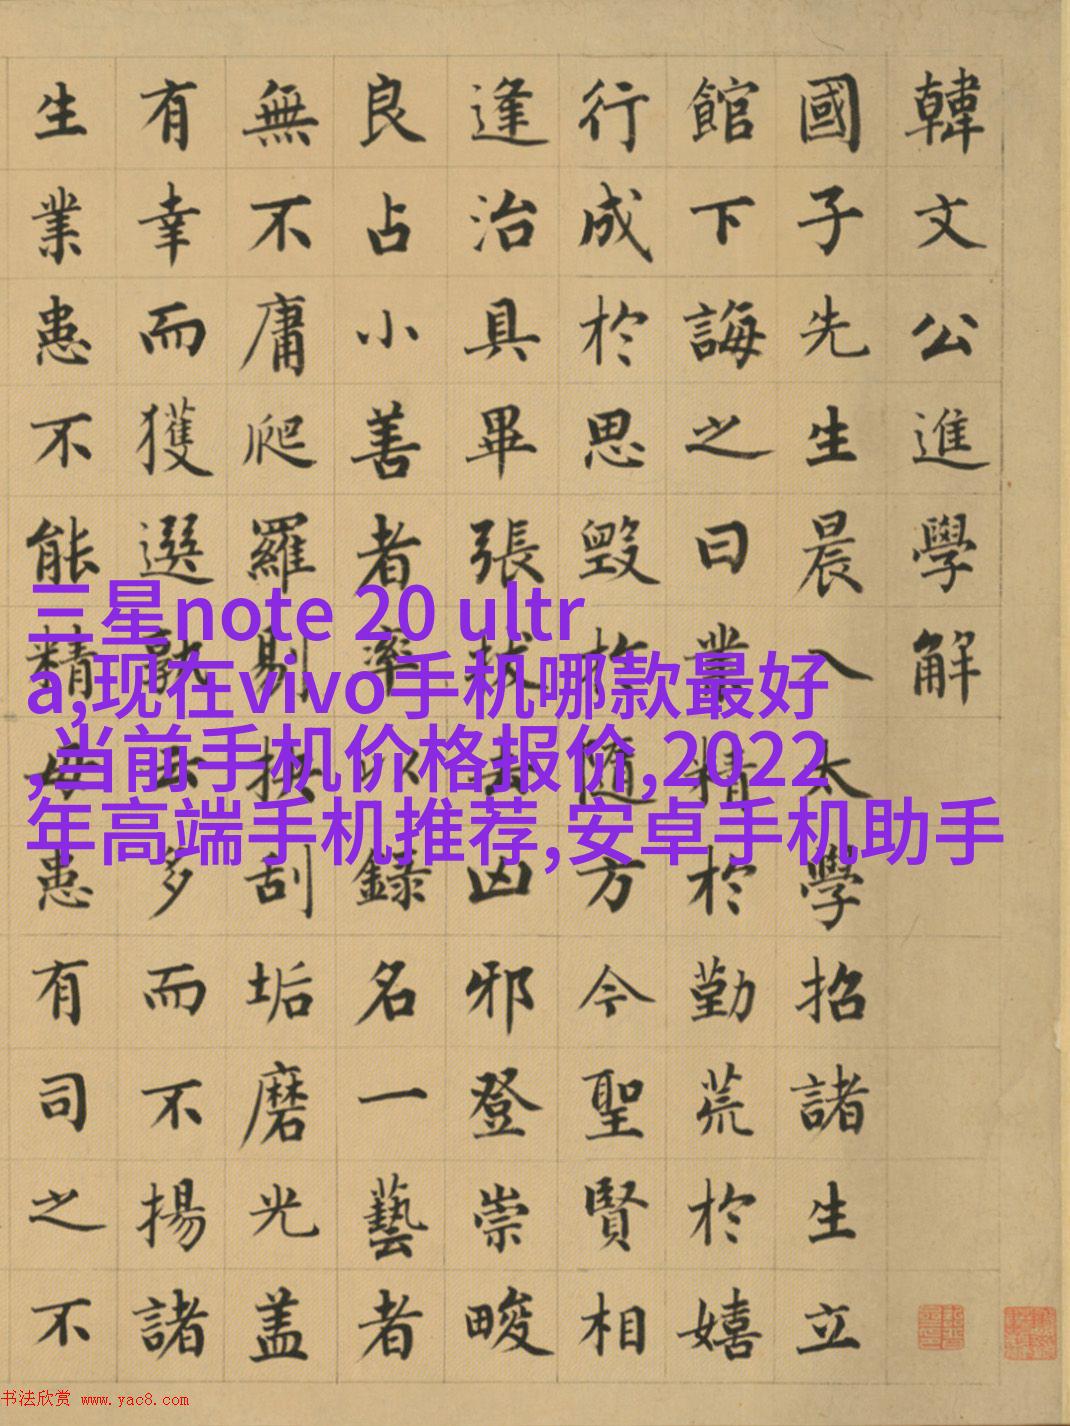 韓文公進學解
國子先生晨入太學招諸生立
館下誨之曰業精於勤荒於嬉
行成於思毀於隨方今聖賢相
逢治具畢張拔去凶邪登崇畯
良占小善者率以錄名一藝者
無不庸爬羅剔抉刮垢磨光盖
有幸而獲選孰云多而不揚諸
生業患不能精毋患有司之不
三星note 20 ultr
a,现在vivo手机哪款最好
,当前手机价格报价,2022
年高端手机推荐,安卓手机助手
书法欣赏 www.yac8.com